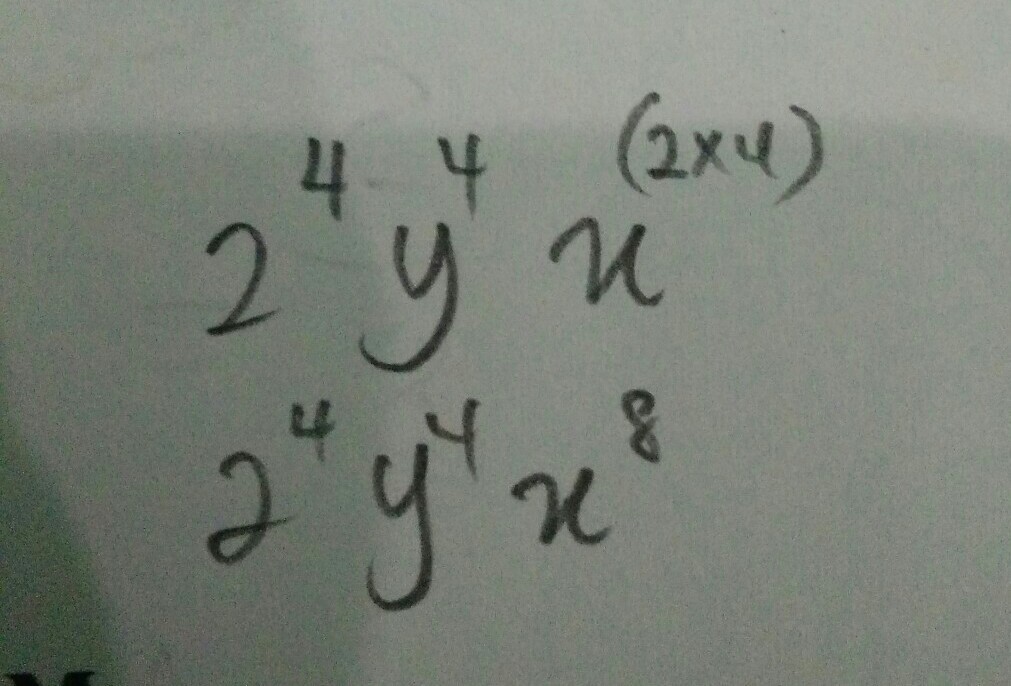 2⁴ y⁴ x⁽²ˣ⁴⁾
2⁴ y⁴ x⁸